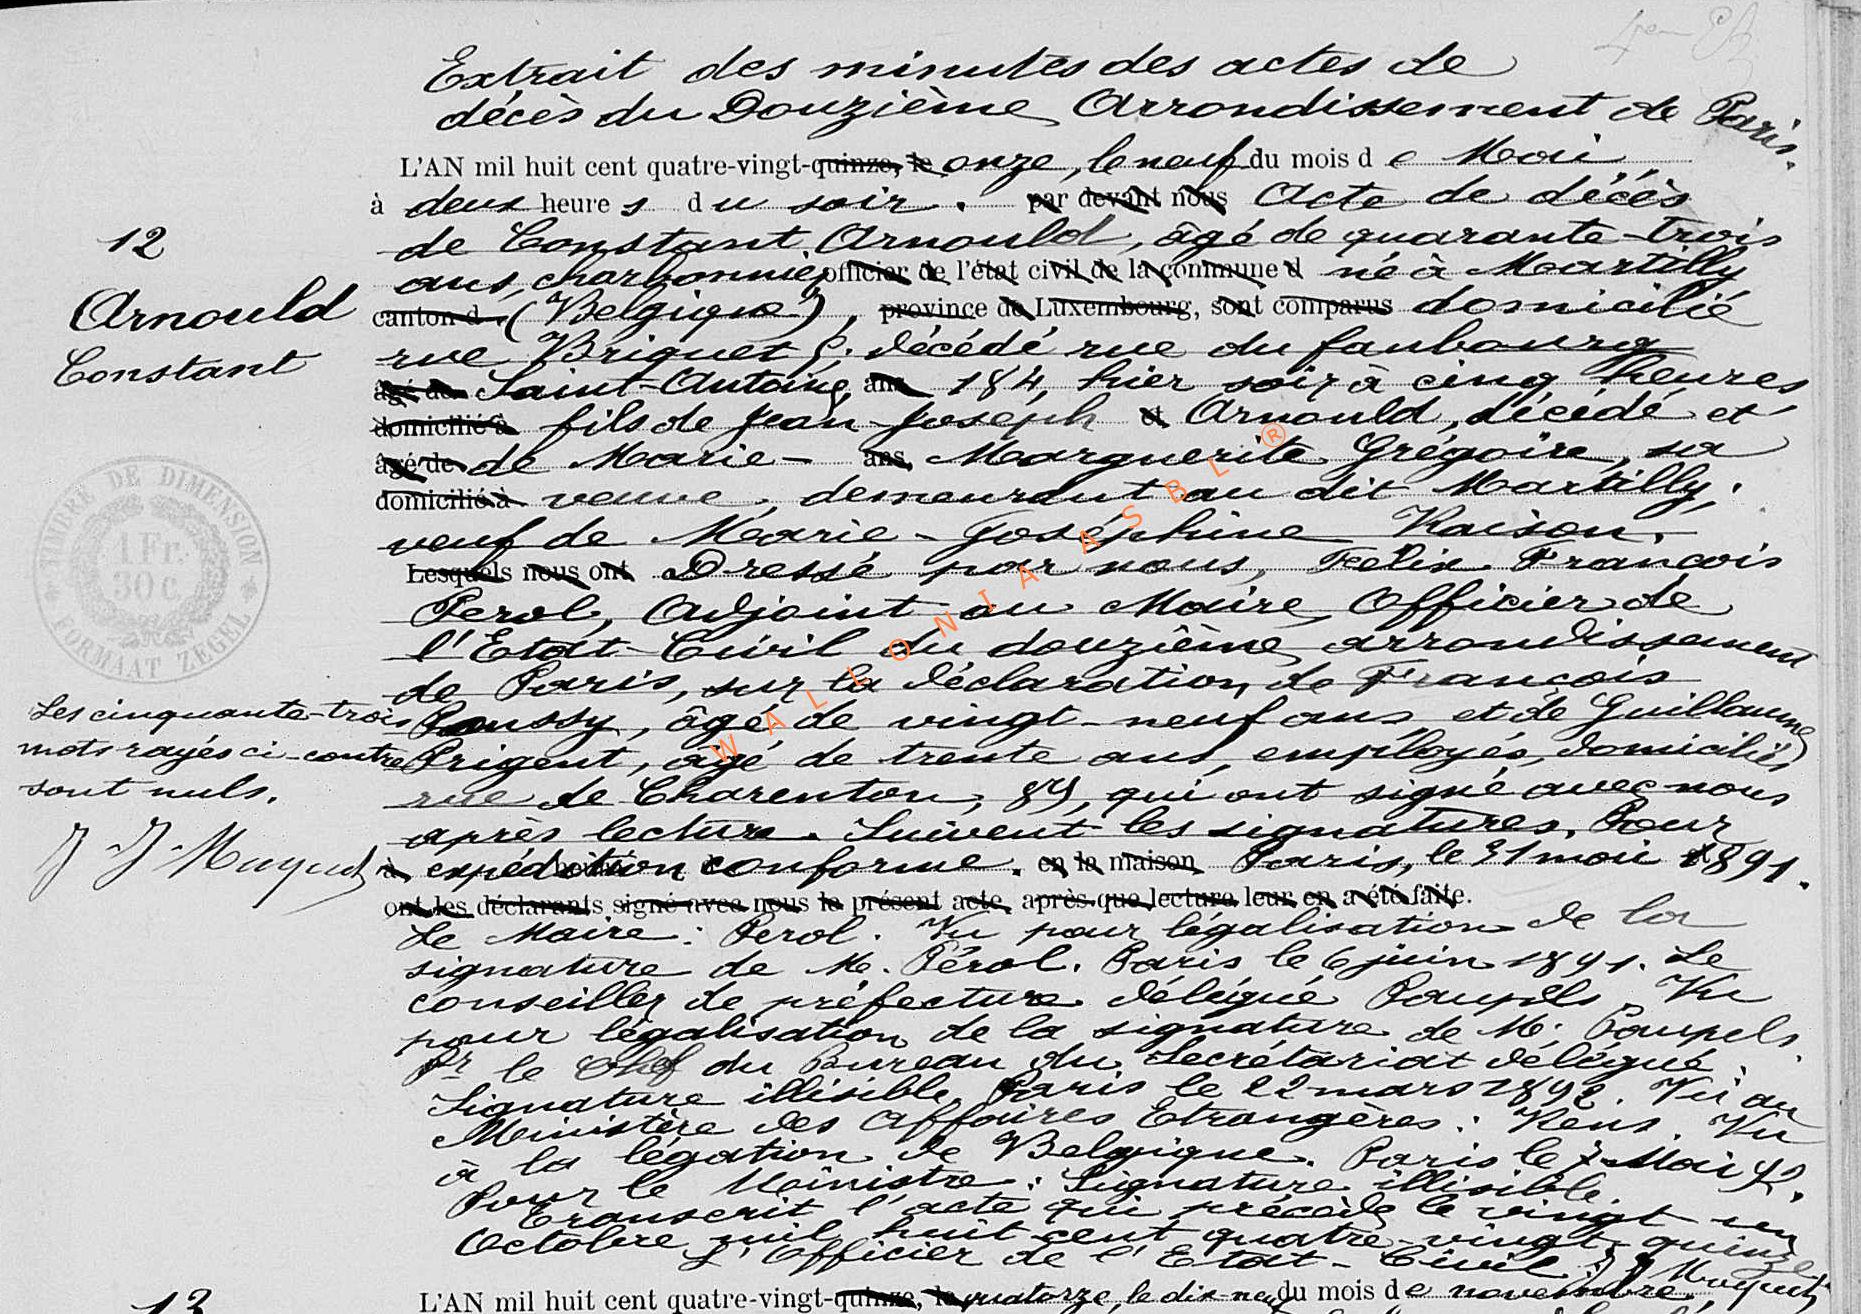 Extrait des minutes des actes de
décès du Douzième Arrondissement de Paris.
L'AN mil huit cent quatre-vingt-quinze, le onze, le neuf du mois de Mai,
à deux heures du soir. par devant nous Acte de décès
12
de Constant Arnould, âgé de quarante-trois
ans, charbonnier, officier de l'état civil de la commune d né à Martilly
Arnould
Constant
canton d (Belgique), province de Luxembourg, sont comparus domicilié
rue Briquet décédé rue du faubourg
âgé de Saint-Antoine, ans 184, hier soir à cinq heures
domicilié à fils de Jean-Joseph et Arnould, décédé et
âgé de de Marie- ans, Marguerite Grégoire, sa
domicilié à veuve, demeurant au dit Martilly,
veuf de Marie-Joséphine Raison.
Lesquels nous ont Dressé par nous, Félix François
Perol, Adjoint au Maire, Officier de
l'Etat-Civil du douzième arrondissement
de Paris, sur la déclaration de François
Poussy, âgé de vingt-neuf ans, et de Guillaume
Prigent, âgé de trente ans, employés, domiciliés
rue de Charenton, 89, qui ont signé avec nous
après lecture. Suivent les signatures. Pour
à expédition conforme. en la maison Paris, le 31 mai 1891.
ont les déclarants signé avec nous le présent acte, après que lecture leur en a été faite.
Les cinquante-trois
mots rayés ci-contre
sont nuls.
J. J. Maquet
TIMBRE DE DIMENSION
1 Fr.
30 c.
FORMAAT ZEGEL
Le Maire: Perol. Vu pour légalisation de la
signature de M. Pérol. Paris le 6 juin 1891. Le
conseiller de préfecture délégué Paupels. Vu
pour légalisation de la signature de M. Paupels.
Pr le Chef du Bureau du Secrétariat délégué:
Signature illisible. Paris le 22 mars 1892. Vu au
Ministère des Affaires Etrangères: Vu
à la légation de Belgique. Paris le 7 Mai 92.
Pour le Ministre: Signature illisible.
Transcrit l'acte qui précède le vingt-un
Octobre mil huit cent quatre-vingt-quinze
L'Officier de l'Etat-Civil: J. J. Maquet
13
L'AN mil huit cent quatre-vingt-quinze, le quatorze, le dix-neuf du mois de novembre
WALLONIA ASBL ®